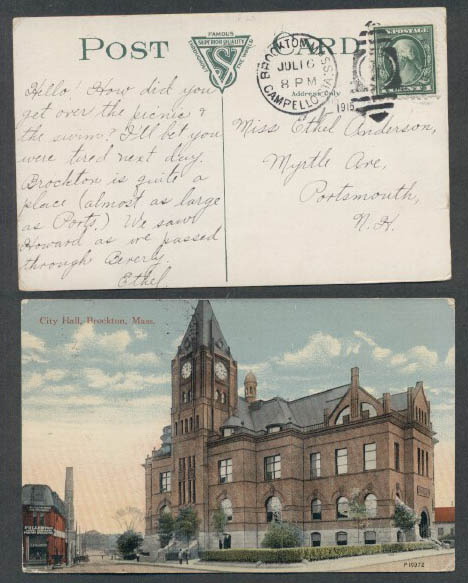 POST CARD
FAMOUS
SUPERIOR QUALITY
BROCKTON, MASS.
JUL 16
8 PM
CAMPELLO STA.
1915
Address Only
Hello! How did you
get over the picnic &
the swim? I'll bet you
were tired next day.
Brockton is quite a
place (almost as large
as Ports.) We saw
Howard as we passed
through Beverly.
Ethel.
Miss Ethel Anderson,
Myrtle Ave,
Portsmouth,
N. H.
City Hall, Brockton, Mass.
FULLERTON
P 10372